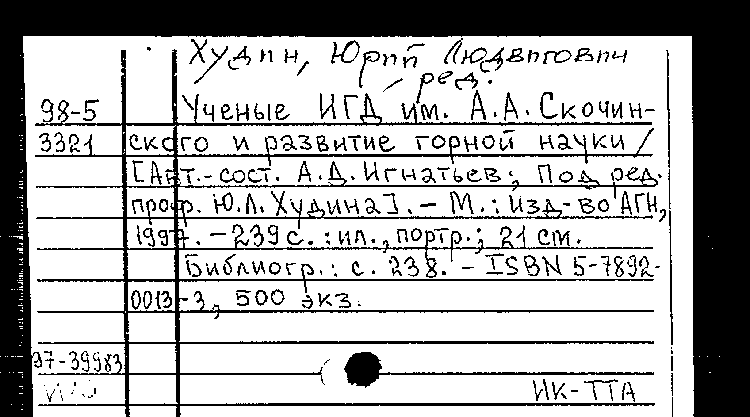 Худин, Юрий Людвигович
ред.
98-5 Ученые ИГД им. А.А.Скочин-
3321 ского и развитие горной науки /
[Авт.-сост. А.Д.Игнатьев; Под ред.
проф. Ю.Л.Худина]. - М.: Изд-во АГН,
1997. - 239 с. : ил., портр.; 21 см.
Библиогр.: с. 238. - ISBN 5-7892-
0013-3, 500 экз.
97-39983
ИК-ТТА